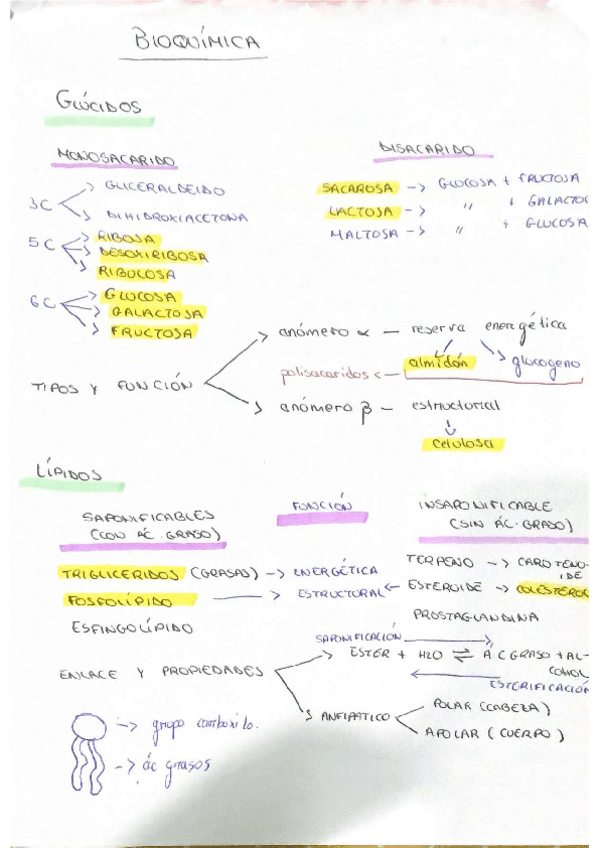 BIOQUÍMICA
GLÚCIDOS
MONOSACARIDO
3C
GLICERALDEIDO
DIHIDROXIACETONA
5C
RIBOSA
DESOXIRIBOSA
RIBULOSA
6C
GLUCOSA
GALACTOSA
FRUCTOSA
DISACARIDO
SACAROSA -> GLUCOSA + FRUCTOSA
LACTOSA -> " + GALACTO
MALTOSA -> " + GLUCOSA
TIPOS Y FUNCIÓN
anómero α — reserva energética
almidón
glucogeno
polisacaridos <-
anómero β — estructural
celulosa
LÍPIDOS
SAPONIFICABLES
(CON ÁC. GRASO)
FUNCIÓN
INSAPONIFICABLE
(SIN ÁC. GRASO)
TRIGLICERIDOS (GRASAS) -> ENERGÉTICA
FOSFOLÍPIDO -> ESTRUCTURAL <-
ESFINGOLÍPIDO
TERPENO -> CAROTENO-
IDE
ESTEROIDE -> COLESTEROL
PROSTAGLANDINA
ENLACE Y PROPIEDADES
SAPONIFICACIÓN
ESTER + H2O ⇌ ÁC GRASO + AL-
COHOL
ESTERIFICACIÓN
ANFIPATICO
POLAR (CABEZA)
APOLAR (CUERPO)
-> grupo carboxilo.
-> ác grasos